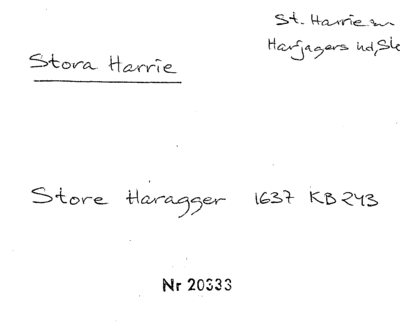 St. Harrie sn
Harjagers hd, Sk
Stora Harrie
Store Haragger 1637 KB 243
Nr 20333